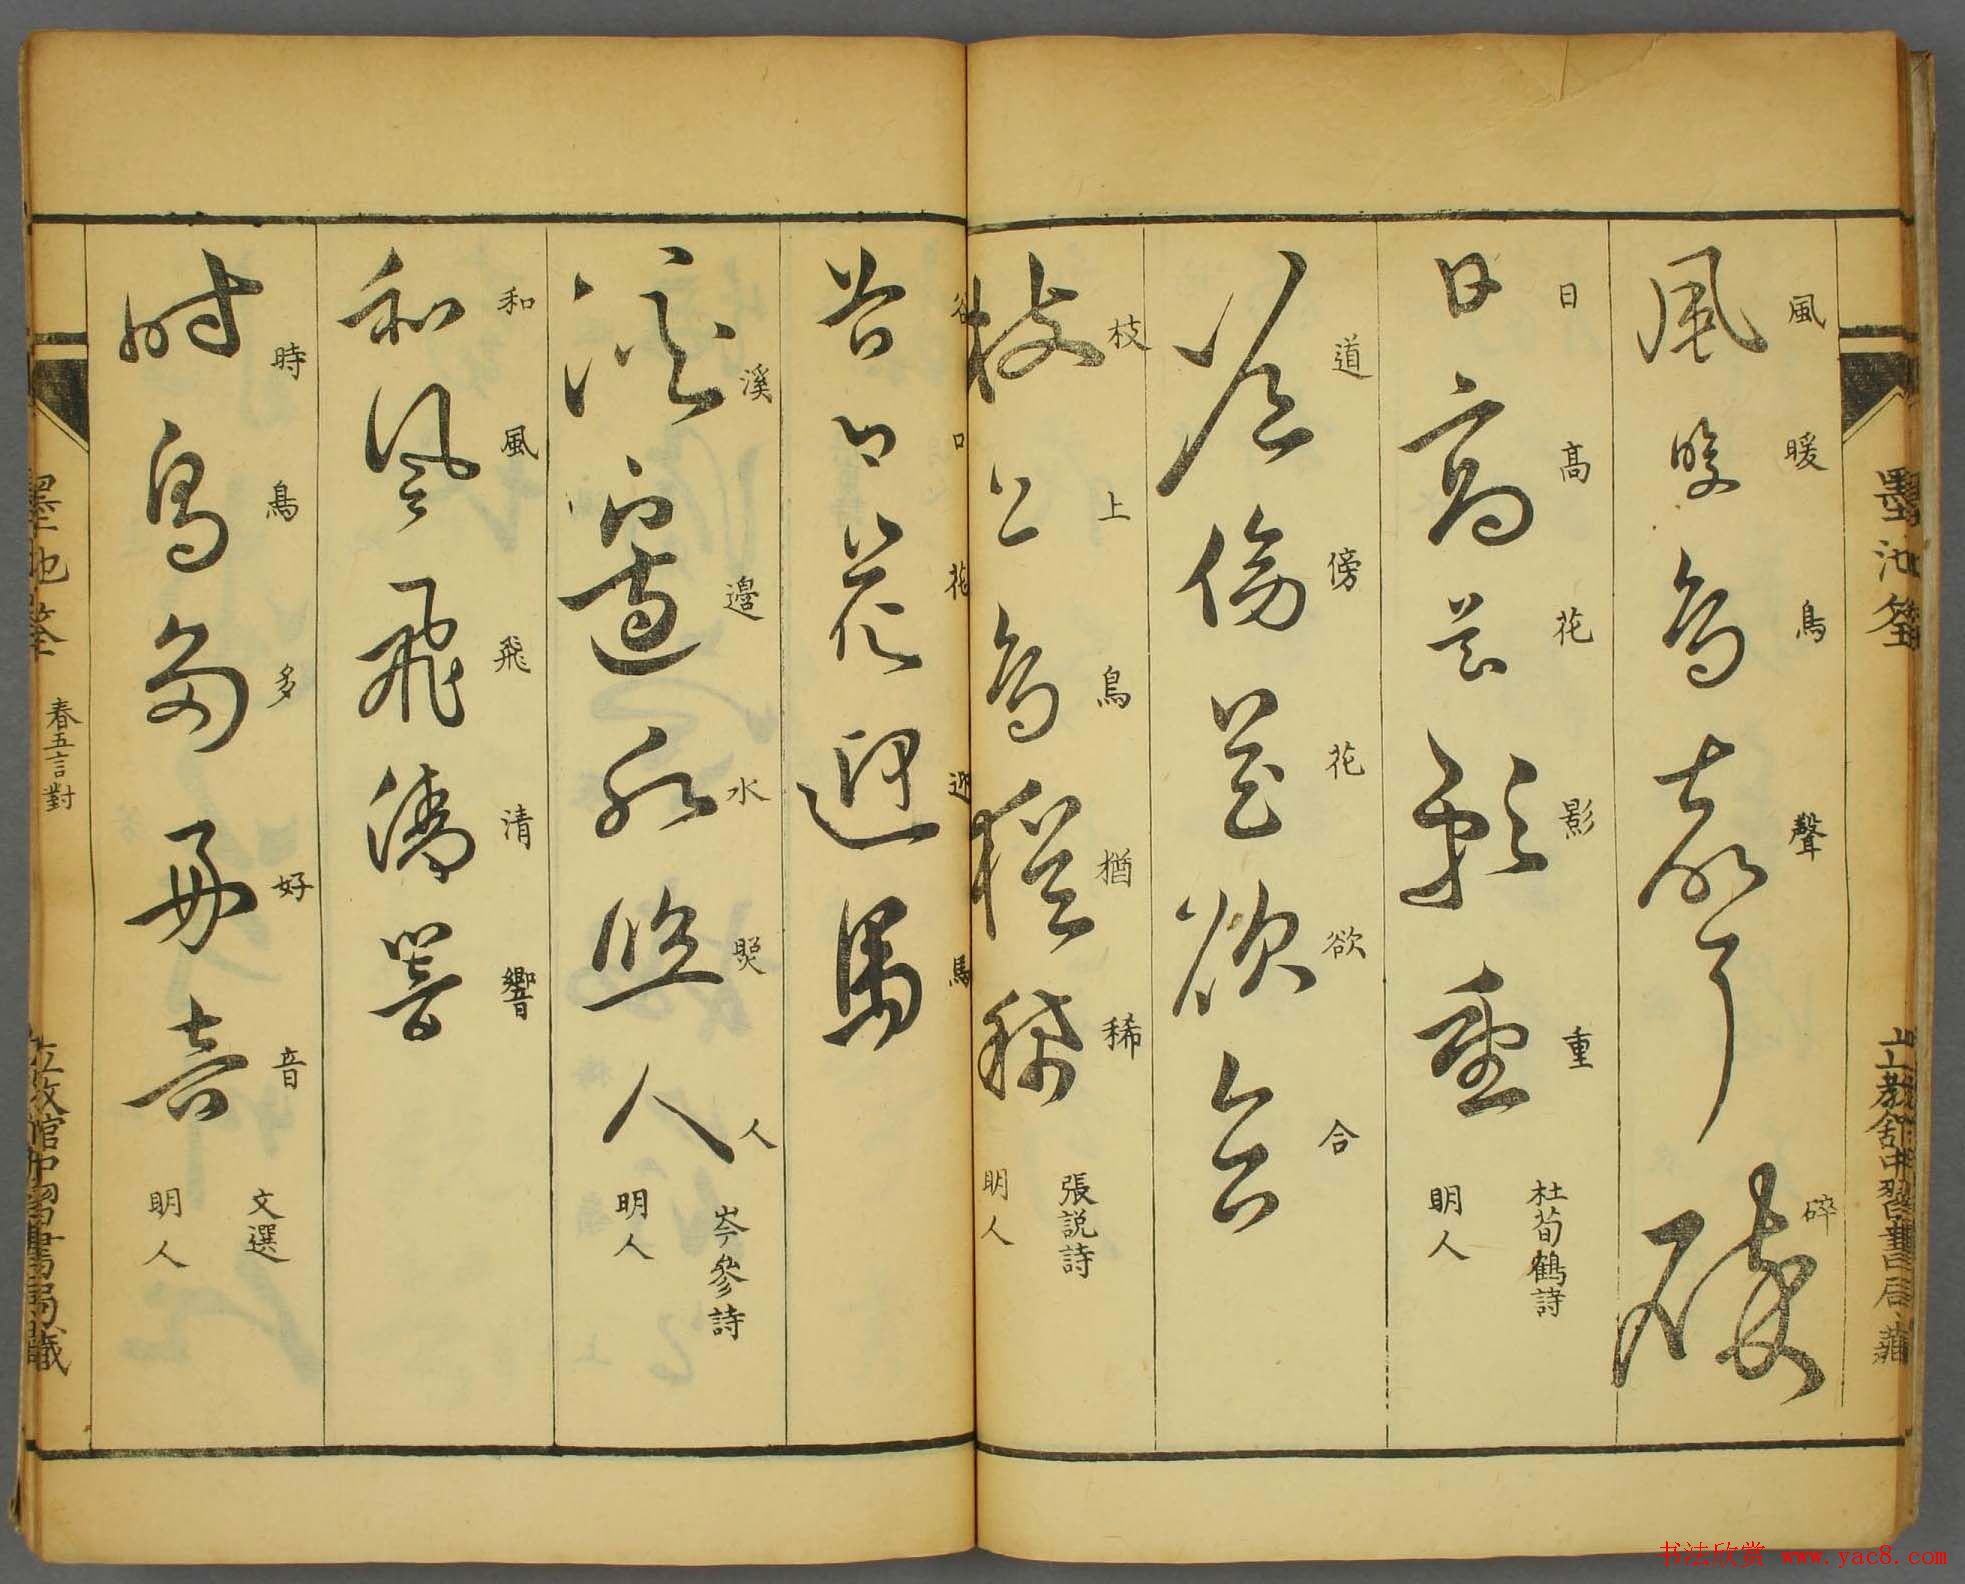 墨池筌
立教館中習書局蔵
風暖鳥聲碎
風暖鳥聲碎
日高花影重
日高花影重
杜荀鶴詩
明人
道傍花欲合
道傍花欲合
枝上鳥猶稀
枝上鳥猶稀
張説詩
明人
谷口花迎馬
谷口花迎馬
溪邊水照人
溪邊水煚人
岑參詩
明人
和風飛清響
和風飛清響
時鳥多好音
時鳥多好音
文選
明人
墨池筌
春五言對
立教館中習書局蔵
书法欣赏 www.yac8.com